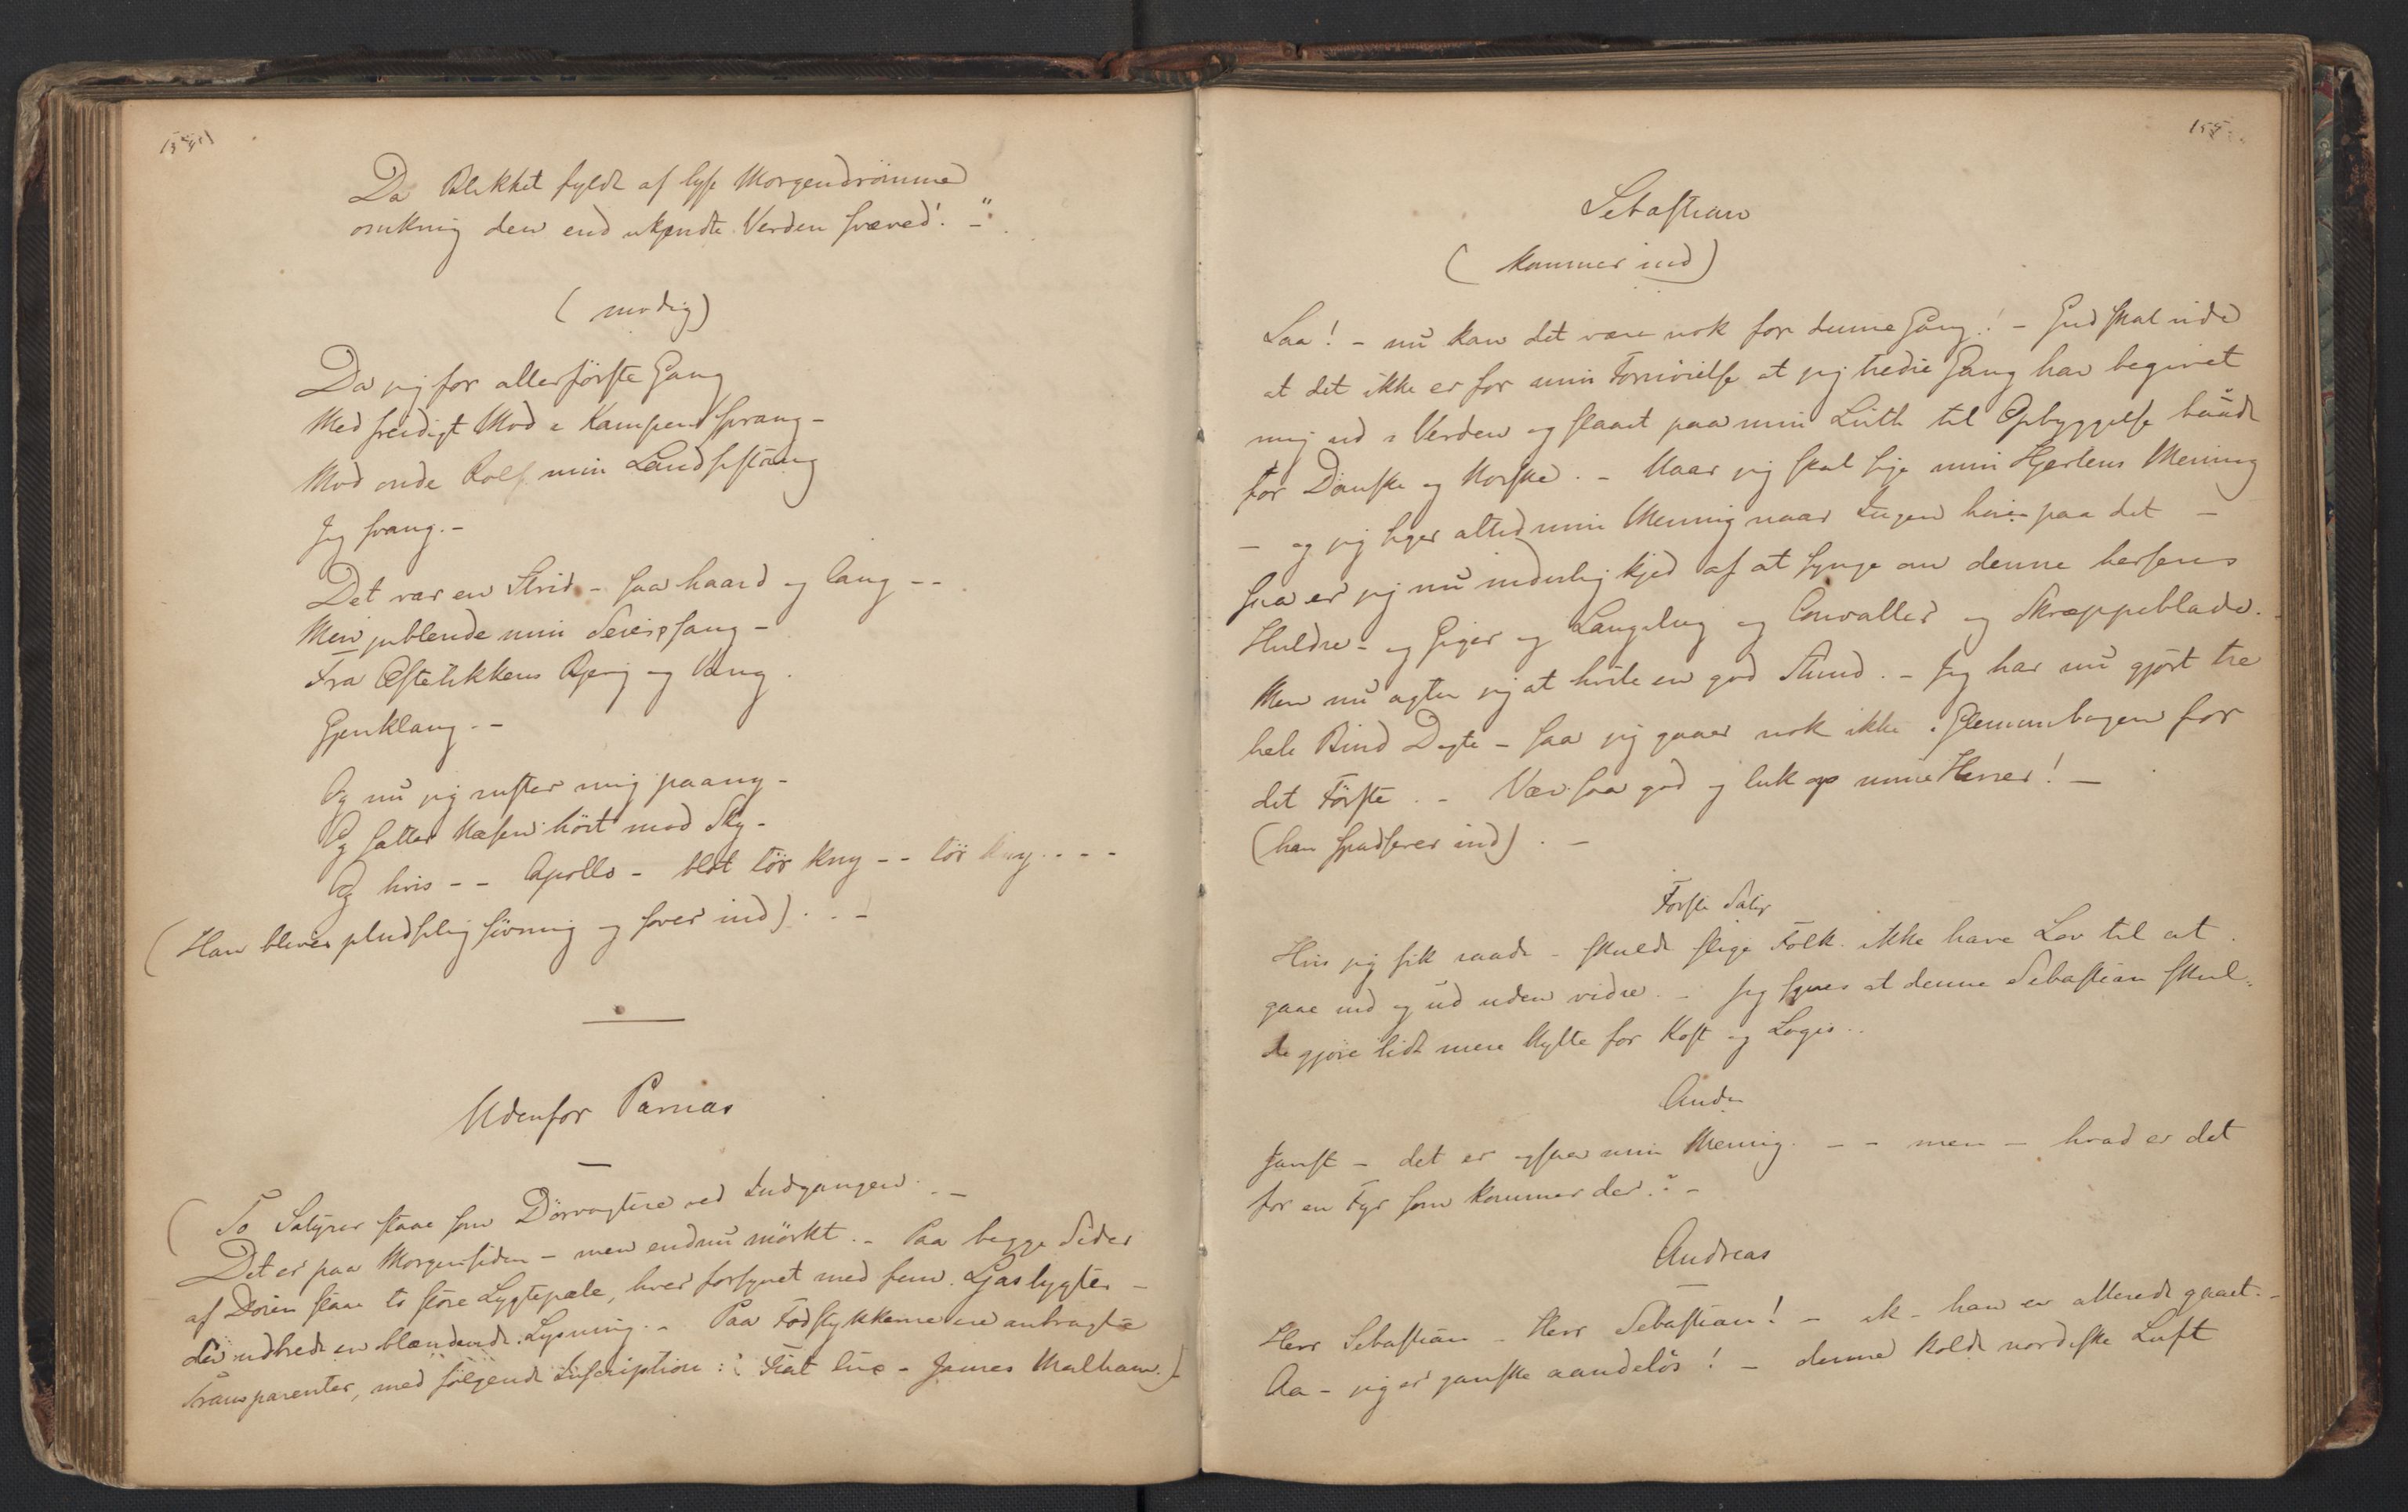 Da Blikket fyldt af lyse Morgendrömme
omkring den end ukjendte Verden svæved! –"
(modig)
Da jeg for allerförste Gang
Med freidigt Mod i Kampen sprang –
Mod onde Rolf min
Jeg svang. –
Det var en Strid – saa haard og lang – –
Men jublende min Seierssang –
Fra og Vang.
Gjenklang. –
Og nu jeg ruster mig paany –
Og sætter Næsen höit mod Sky –
Og hvis – – Apollo – blot tör kny – – tör kny . . . –
(Han bliver pludselig sövnig og sover ind) . . –
Udenfor Parnas
(To Satyrer staae som Dörvogtere ved Indgangen. . –
Det er paa Morgensiden – men endnu mörkt. – Paa begge Sider
af Dören staae to store Lygtepæle, hver forsynet med fem Gaslygter –
der udbrede en blændende Lysning. – Paa Fodstykkerne ere anbragte
Transparenter, med fölgende Inscription: Fiat lux – James Malham.)
155
Sebastian
(kommer ind)
Saa! – nu kan det være nok for denne Gang! – Gud skal vide
at det ikke er for min Fornöielse at jeg tredie Gang har begivet
mig ud i Verden og slaaet paa min Luth til Opbyggelse baade
for Danske og Norske. – Naar jeg skal sige min Hjertens Mening
– og jeg siger altid min Mening naar Ingen hörer paa det –
saa er jeg nu inderlig kjed af at synge om denne hersens
Huldre – og Giger og Langeleg og Convaller og Skræppeblade.
Men nu agter jeg at hvile en god Stund. – Jeg har nu gjört tre
hele Bind Digte – saa jeg gaaer nok ikke i Glemmebogen for
det Förste. – Vær saa god og luk op mine Herrer! –
(han spadserer ind) . –
Förste Satyr
Hvis jeg fik raade – skulde slige Folk ikke have Lov til at
gaae ind og ud uden videre. – Jeg synes at denne Sebastian skul-
de gjöre lidt mere Nytte for Kost og Logis. .
Anden
Javist – det er ogsaa min Mening. – – men – hvad er det
for en Fyr som kommer der? –
Andreas
Herr Sebastian – Herr Sebastian! – ak – han er allerede gaaet. –
Aa – jeg er ganske aandelös! – denne kolde nordiske Luft